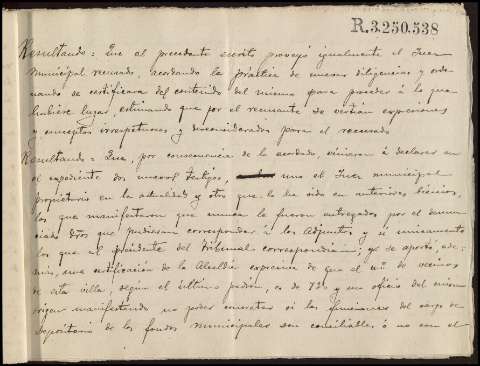 R.3.250.538
Resultando: Que al precedente escrito proveyó igualmente el Juez
municipal recusado, acordando la práctica de nuevas diligencias y orde-
nando se certificara del contenido del mismo para proceder á lo que
hubiere lugar, estimando que por el recusante se vertian expresiones
y conceptos irrespetuosos y desconsiderados para el recusado
Resultando: Que, por consecuencia de lo acordado, vinieron á declarar en
el expediente dos nuevos testigos, uno el Juez municipal
propietario en la actualidad y otro que lo ha sido en anteriores bienios,
los que manifestaron que nunca le fueron entregados por el denun-
ciado dros que pudiesen corresponder á los Adjuntos y si unicamente
los que al presidente del Tribunal correspondian; y se aportó, ade-
más, una certificación de la Alcaldía expresiva de que el nº de vecinos
de esta villa, según el último padrón, es de 720 y un oficio del mismo
origen manifestando no poder concretar si las funciones del cargo de
Depositario de los fondos municipales son conciliables ó no con el